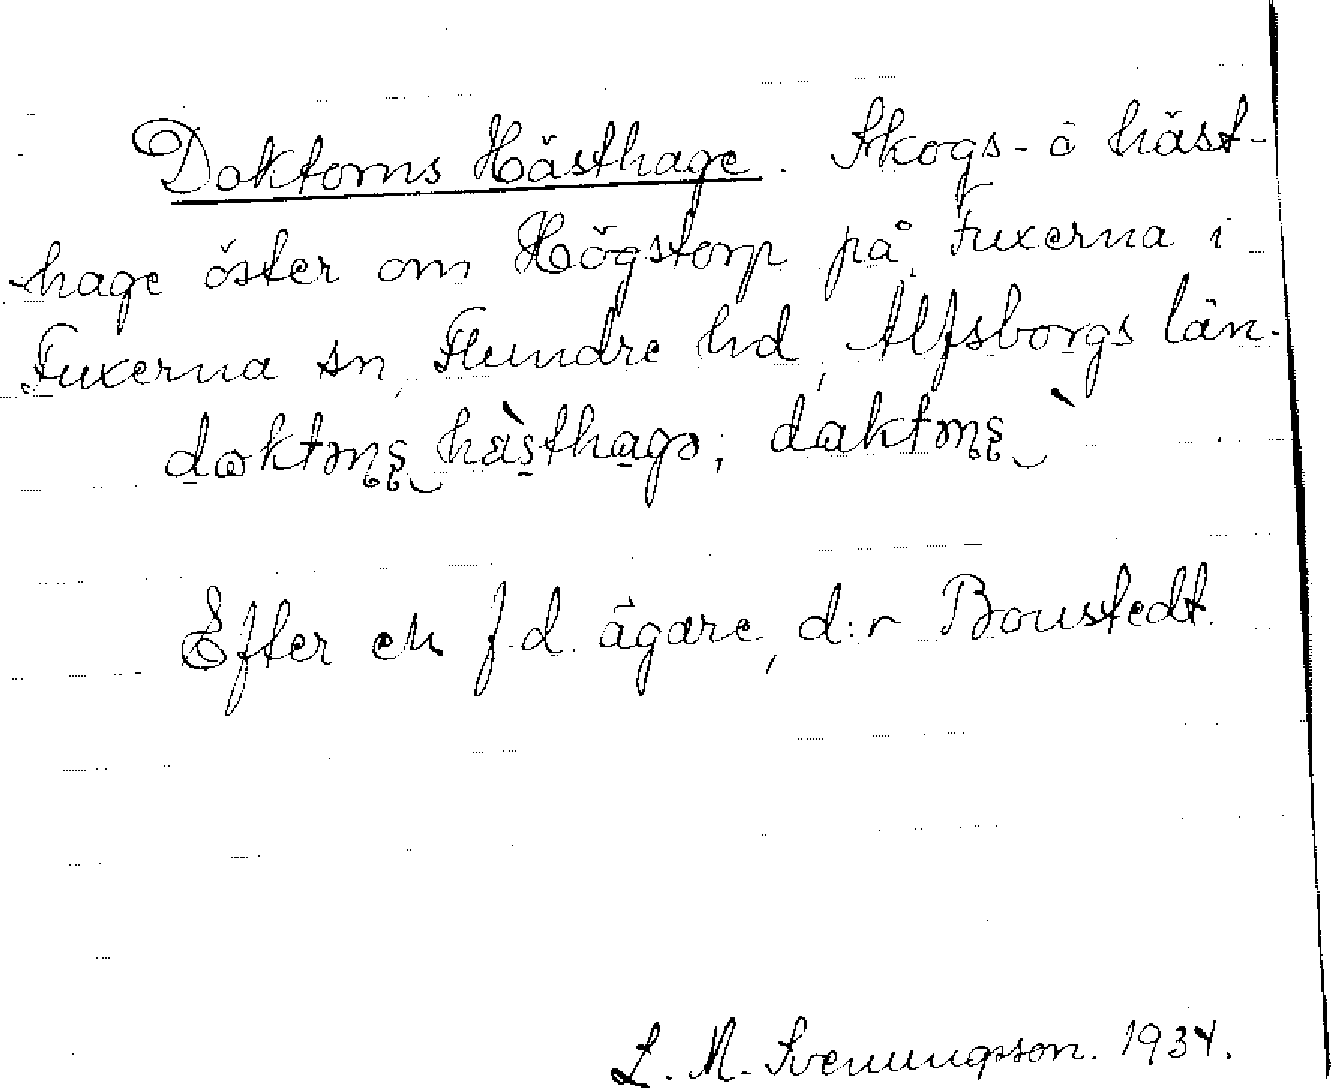 Doktorns Hästhage. Skogs- o häst-
hage öster om Högstorp på Fuxerna i
Fuxerna sn, Flundre hd, Älfsborgs län.
Efter en f.d. ägare, d:r Boustedt.
L. M. Svenungsson. 1934.